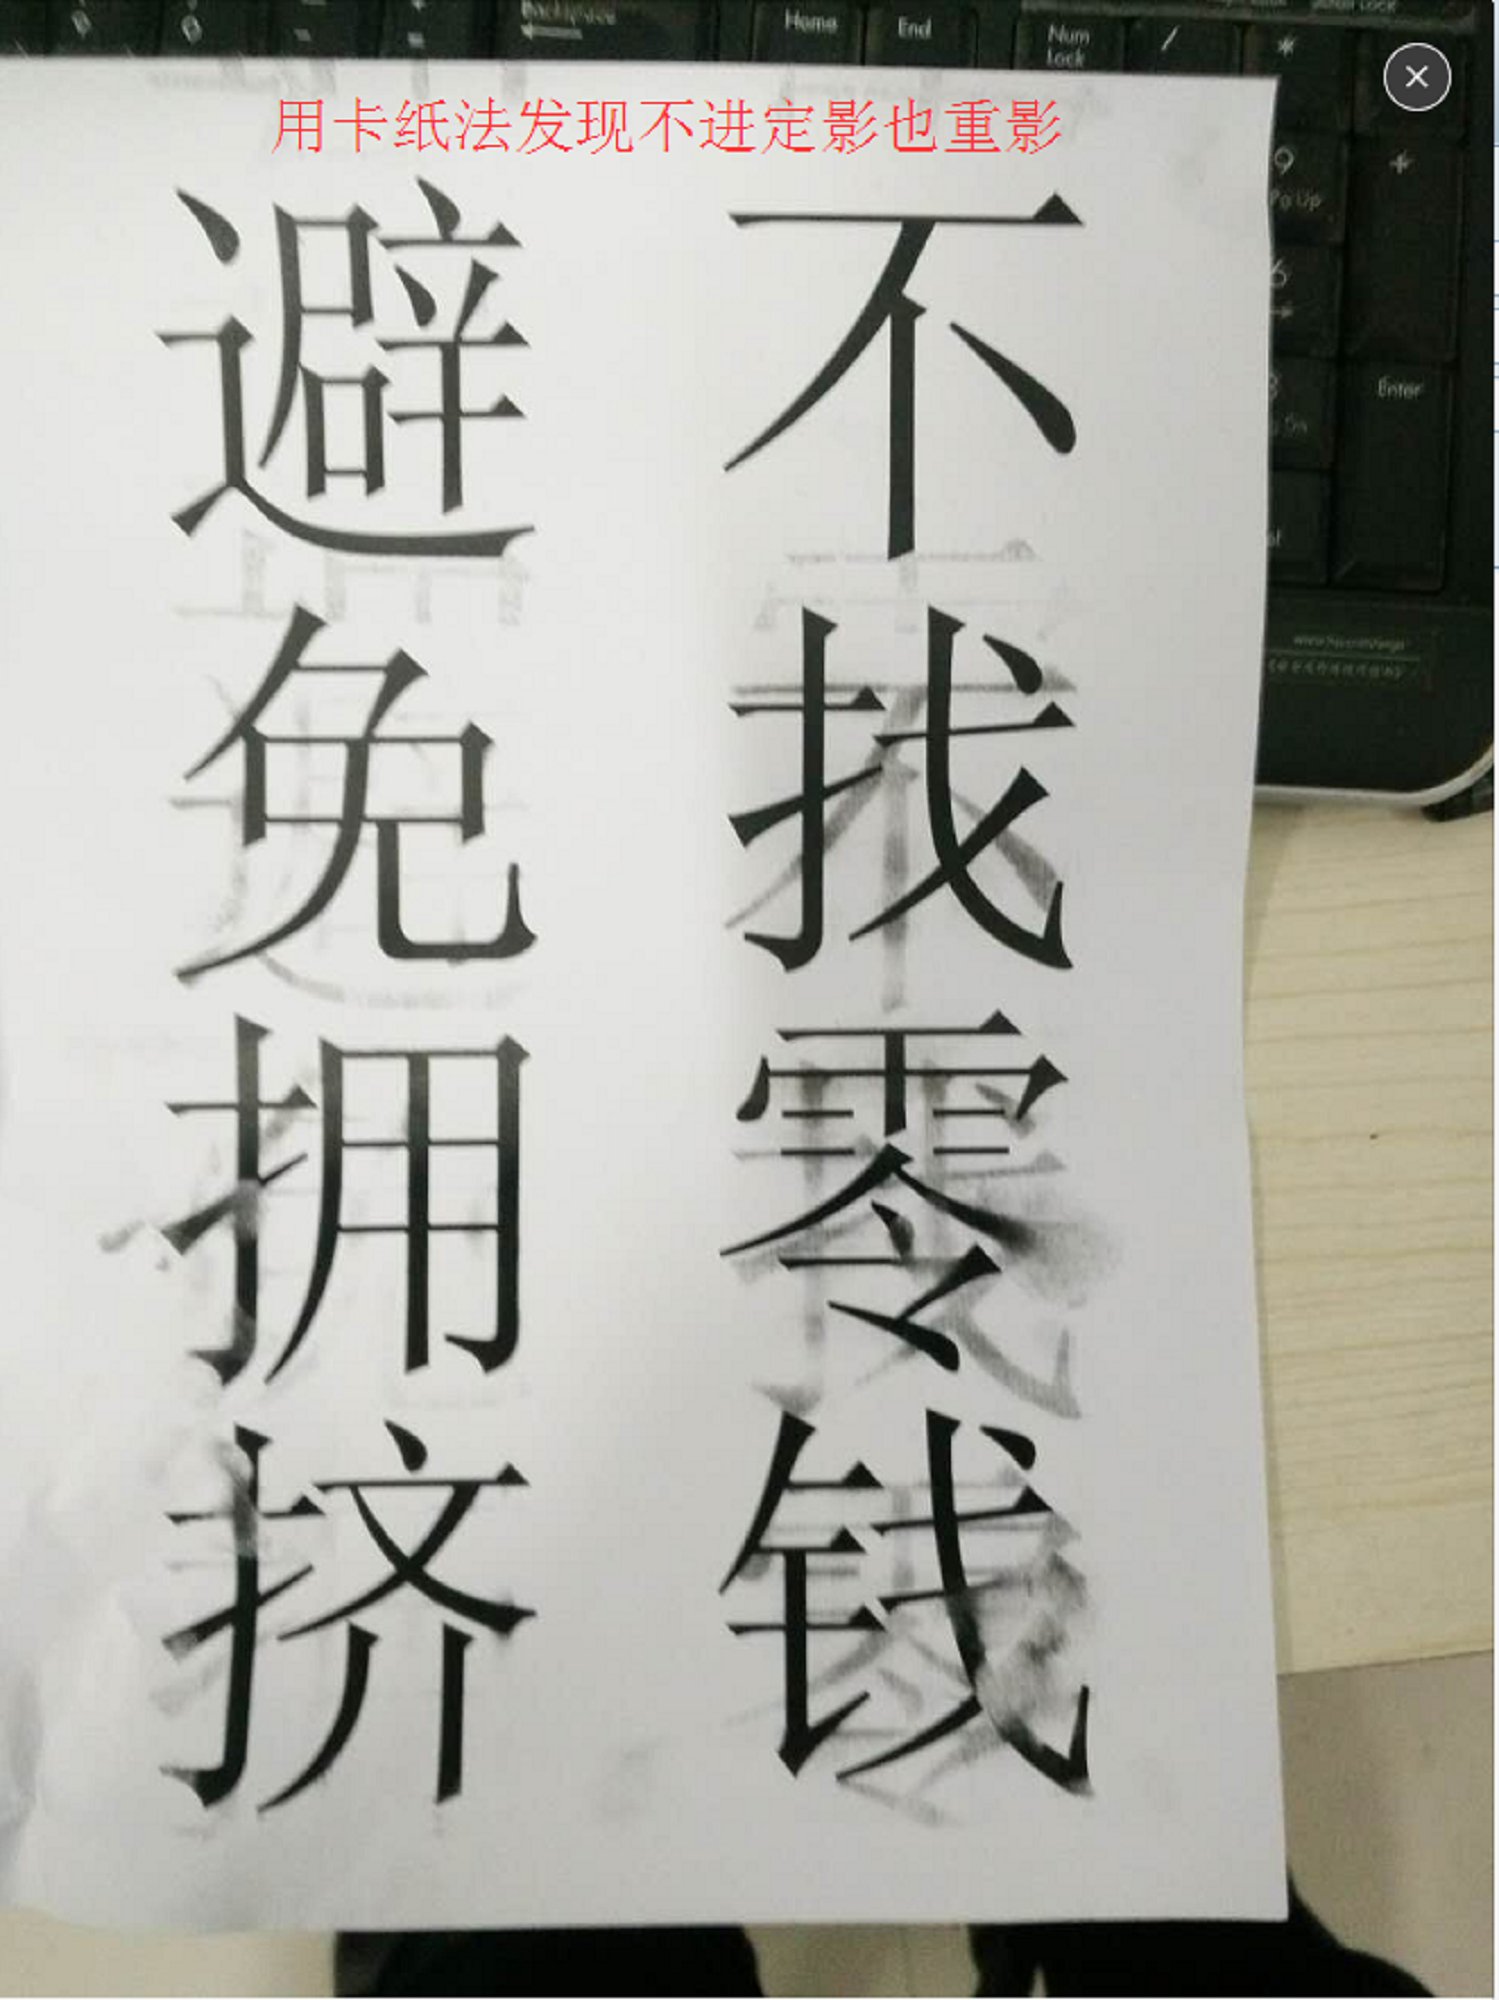 Backspace
Home
End
Num
Lock
/
*
用卡纸法发现不进定影也重影
9
Pg Up
+
6
Enter
不找零钱
避免拥挤